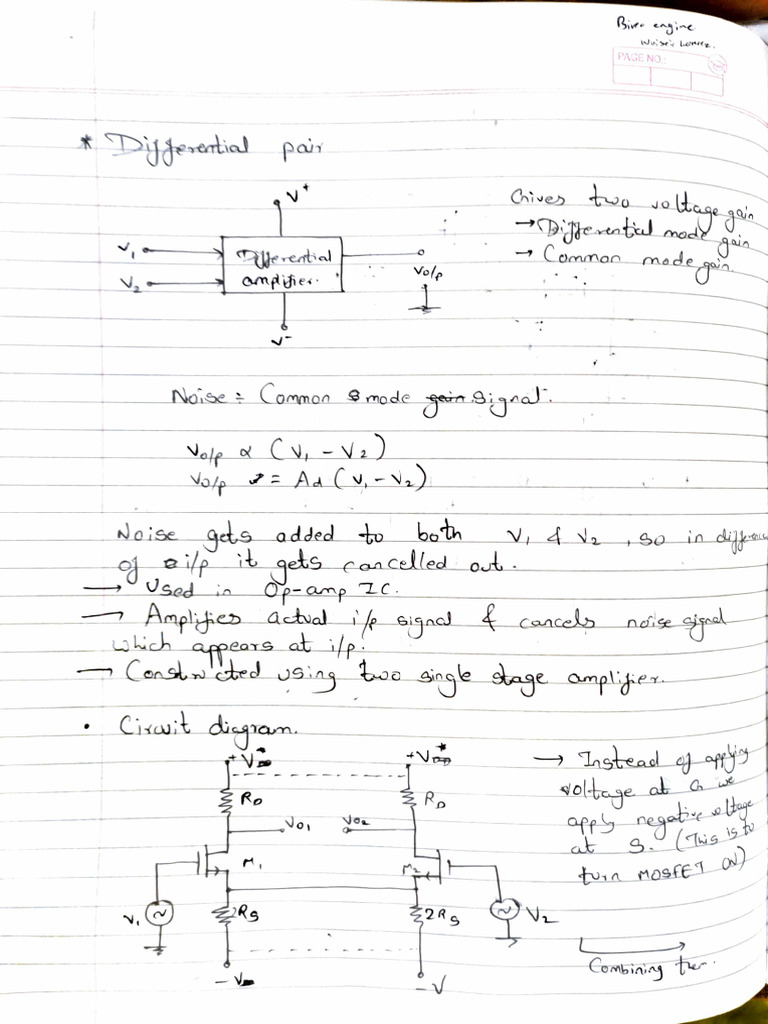 PAGE NO.:
* Differential pair
V+
Gives two voltage gain
→ Differential mode gain
→ Common mode gain.
V1
V2
Differential amplifier.
Vo/p
V-
Noise = Common mode gain signal.
Vo/p ∝ (V1 - V2)
Vo/p = Ad (V1 - V2)
Noise gets added to both V1 & V2, so in difference
of i/p it gets cancelled out.
→ Used in Op-amp IC.
→ Amplifies actual i/p signal & cancels noise signal
which appears at i/p.
→ Constructed using two single stage amplifier.
• Circuit diagram.
+V
+V
RD
RD
Vo1
Vo2
M1
M2
V1
2RS
2RS
V2
-V
-V
→ Instead of applying
voltage at G we
apply negative voltage
at S. (This is to
turn MOSFET ON)
Combining